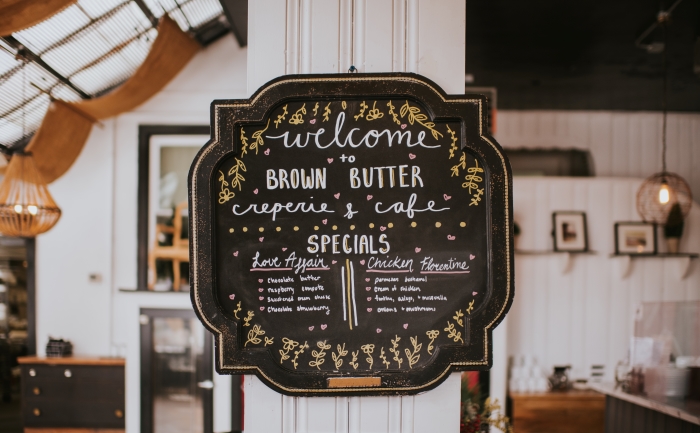 welcome
to
BROWN BUTTER
creperie & cafe
SPECIALS
Love Affair
chocolate butter
raspberry compote
sweetened cream cheese
chocolate strawberry
Chicken Florentine
parmesan bechamel
cream of chicken
onions + mushrooms